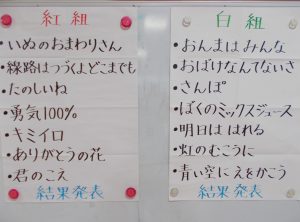 紅組
・いぬのおまわりさん
・線路はつづくよどこまでも
・たのしいね
・勇気100%
・キミイロ
・ありがとうの花
・君のこえ
結果発表
白組
・おんまはみんな
・おばけなんてないさ
・さんぽ
・ぼくのミックスジュース
・明日ははれる
・虹のむこうに
・青い空にえをかこう
結果発表